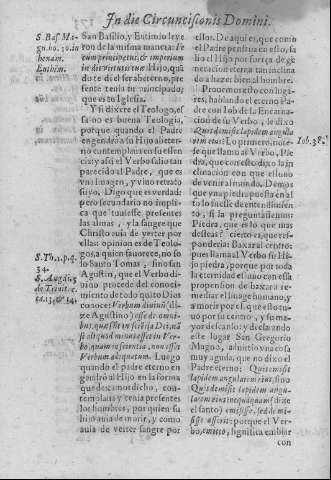 In die Circuncisionis Domini.
S. Bas. Ma
gn. ho. in
henam.
Euthim.
San Basilio, y Eutimio leye
ron de la misma manera: Fe
cum principem, & imperium
in die virtutis tuæ. Hijo, quã
do te di el ser ab eterno, pre
sente tenia tu principado,
que es tu Iglesia.
Y si dixere el Teologo, q̃
essa no es buena Teologia,
porque quando el Padre
engendrò a su Hijo ab eter
no, contemplaua en su essen
cia y assi el Verbo salio tan
parecido al Padre, que es
vna Imagen, y viuo retrato
suyo. Digo que es verdad:
pero secundaria no impli
ca que tuuiesse presentes
las almas, y la sangre que
Christo auia de verter por
ellas: opinion es de Teolo
gos, a quien fauorece, no so
lo Santo Tomas, sino san
Agustin, que el Verbo di
uino procede del conoci-
miento de todo quāto Dios
conoce: Verbum diuinū (di-
ze Agustino) esse de omni-
bus, quæ sūt in sciētia Dei, nā
si aliquod
bo, quam in scientia, non esset
Verbum adæquatum. Luego
quando el padre eterno en
gendrò al Hijo en la forma
que dezimos dicha, con-
templaua y tenia presentes
los hombres, por quien su
hijo auia de morir, y como
auia de verter sangre por
S. Th. 1. p. q.
34.
S. Augus.
de Trinit. c.
14. 13. & 14.
ellos. De aqui es, que como
el Padre pensaua en esto, sa
lio el Hijo por fuerça de ge
neracion eterna tan inclina
do a hazer bien al hombre.
Prouemos esto con luga-
res, hablando el eterno Pa-
dre con Iob de la Encarna-
cion de su Verbo, le dixo
Quis demisit lapidem angula
rem eius? Lo primero, note-
se que llama al Verbo, Pie-
dra, que con esto dixo la in
clinacion con que el uno
de venir al mundo. Demos
que vna piedra puesta en al
to fuesse de entendimiēto,
si la preguntassemos:
Piedra, que es lo que mas
desseas? cierto es, que res-
ponderia: Baxar al centro:
pues llama al Verbo su Hi-
jo piedra, porque por toda
la eternidad estuuo con essa
propension de baxara re-
mediar el linage humano, y
a morir por el, que esto tu-
uo por su centro, y por su
mayor descanso: y declarando
este lugar San Gregorio
Magno, aduirtio vna cosa
muy aguda, que no dixo el
Padre eterno: Quis misit
lapidem angularem eius, sino
Quis demisit lapidem angu-
larem eius
el santo) emisisse, sed demi-
sisse asserit: porque el Ver-
bo, emitto, significa embiar
con
Iob. 38.